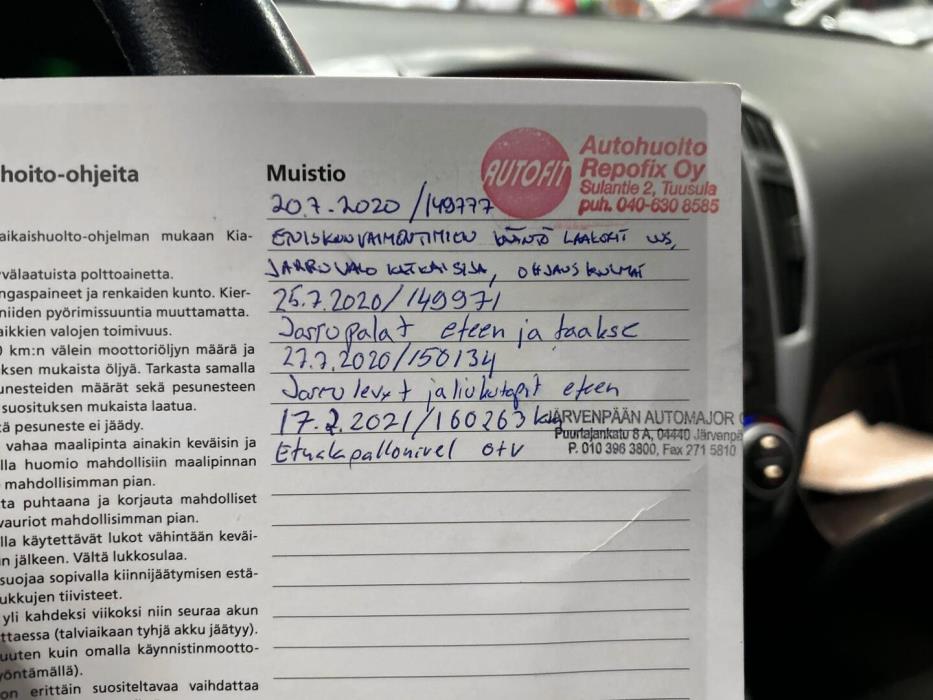 hoito-ohjeita
aikaishuolto-ohjelman mukaan Kia-
välaatuista polttoainetta.
ngaspaineet ja renkaiden kunto. Kier-
niiden pyörimissuuntia muuttamatta.
aikkien valojen toimivuus.
0 km:n välein moottoriöljyn määrä ja
ksen mukaista öljyä. Tarkasta samalla
unesteiden määrät sekä pesunesteen
suosituksen mukaista laatua.
tä pesuneste ei jäädy.
vahaa maalipinta ainakin keväisin ja
lla huomio mahdollisiin maalipinnan
mahdollisimman pian.
ta puhtaana ja korjauta mahdolliset
vauriot mahdollisimman pian.
lla käytettävät lukot vähintään keväi-
n jälkeen. Vältä lukkosulaa.
suojaa sopivalla kiinnijäätymisen estä-
ukkujen tiivisteet.
yli kahdeksi viikoksi niin seuraa akun
ttaessa (talviaikaan tyhjä akku jäätyy).
uuten kuin omalla käynnistinmootto-
yöntämällä).
on erittäin suositeltavaa vaihdattaa
Muistio
AUTOFIT
Autohuolto
Repofix Oy
Sulantie 2, Tuusula
puh. 040-630 8585
20.7.2020/149777
ETUISKUNVAIMENTIMIEN LAAKERIT UUS,
JARRUVALO KATKAISIJA, OHJAUSKULMAT
25.7.2020/149971
Jarrupalat eteen ja taakse
27.7.2020/150134
Jarrulevyt ja liukutapit eteen
17.2.2021/160263 km
JÄRVENPÄÄN AUTOMAJOR
Puurtajankatu 8 A, 04440 Järvenpä
P. 010 396 3800, Fax 271 5810
Etualapallonivel o+v